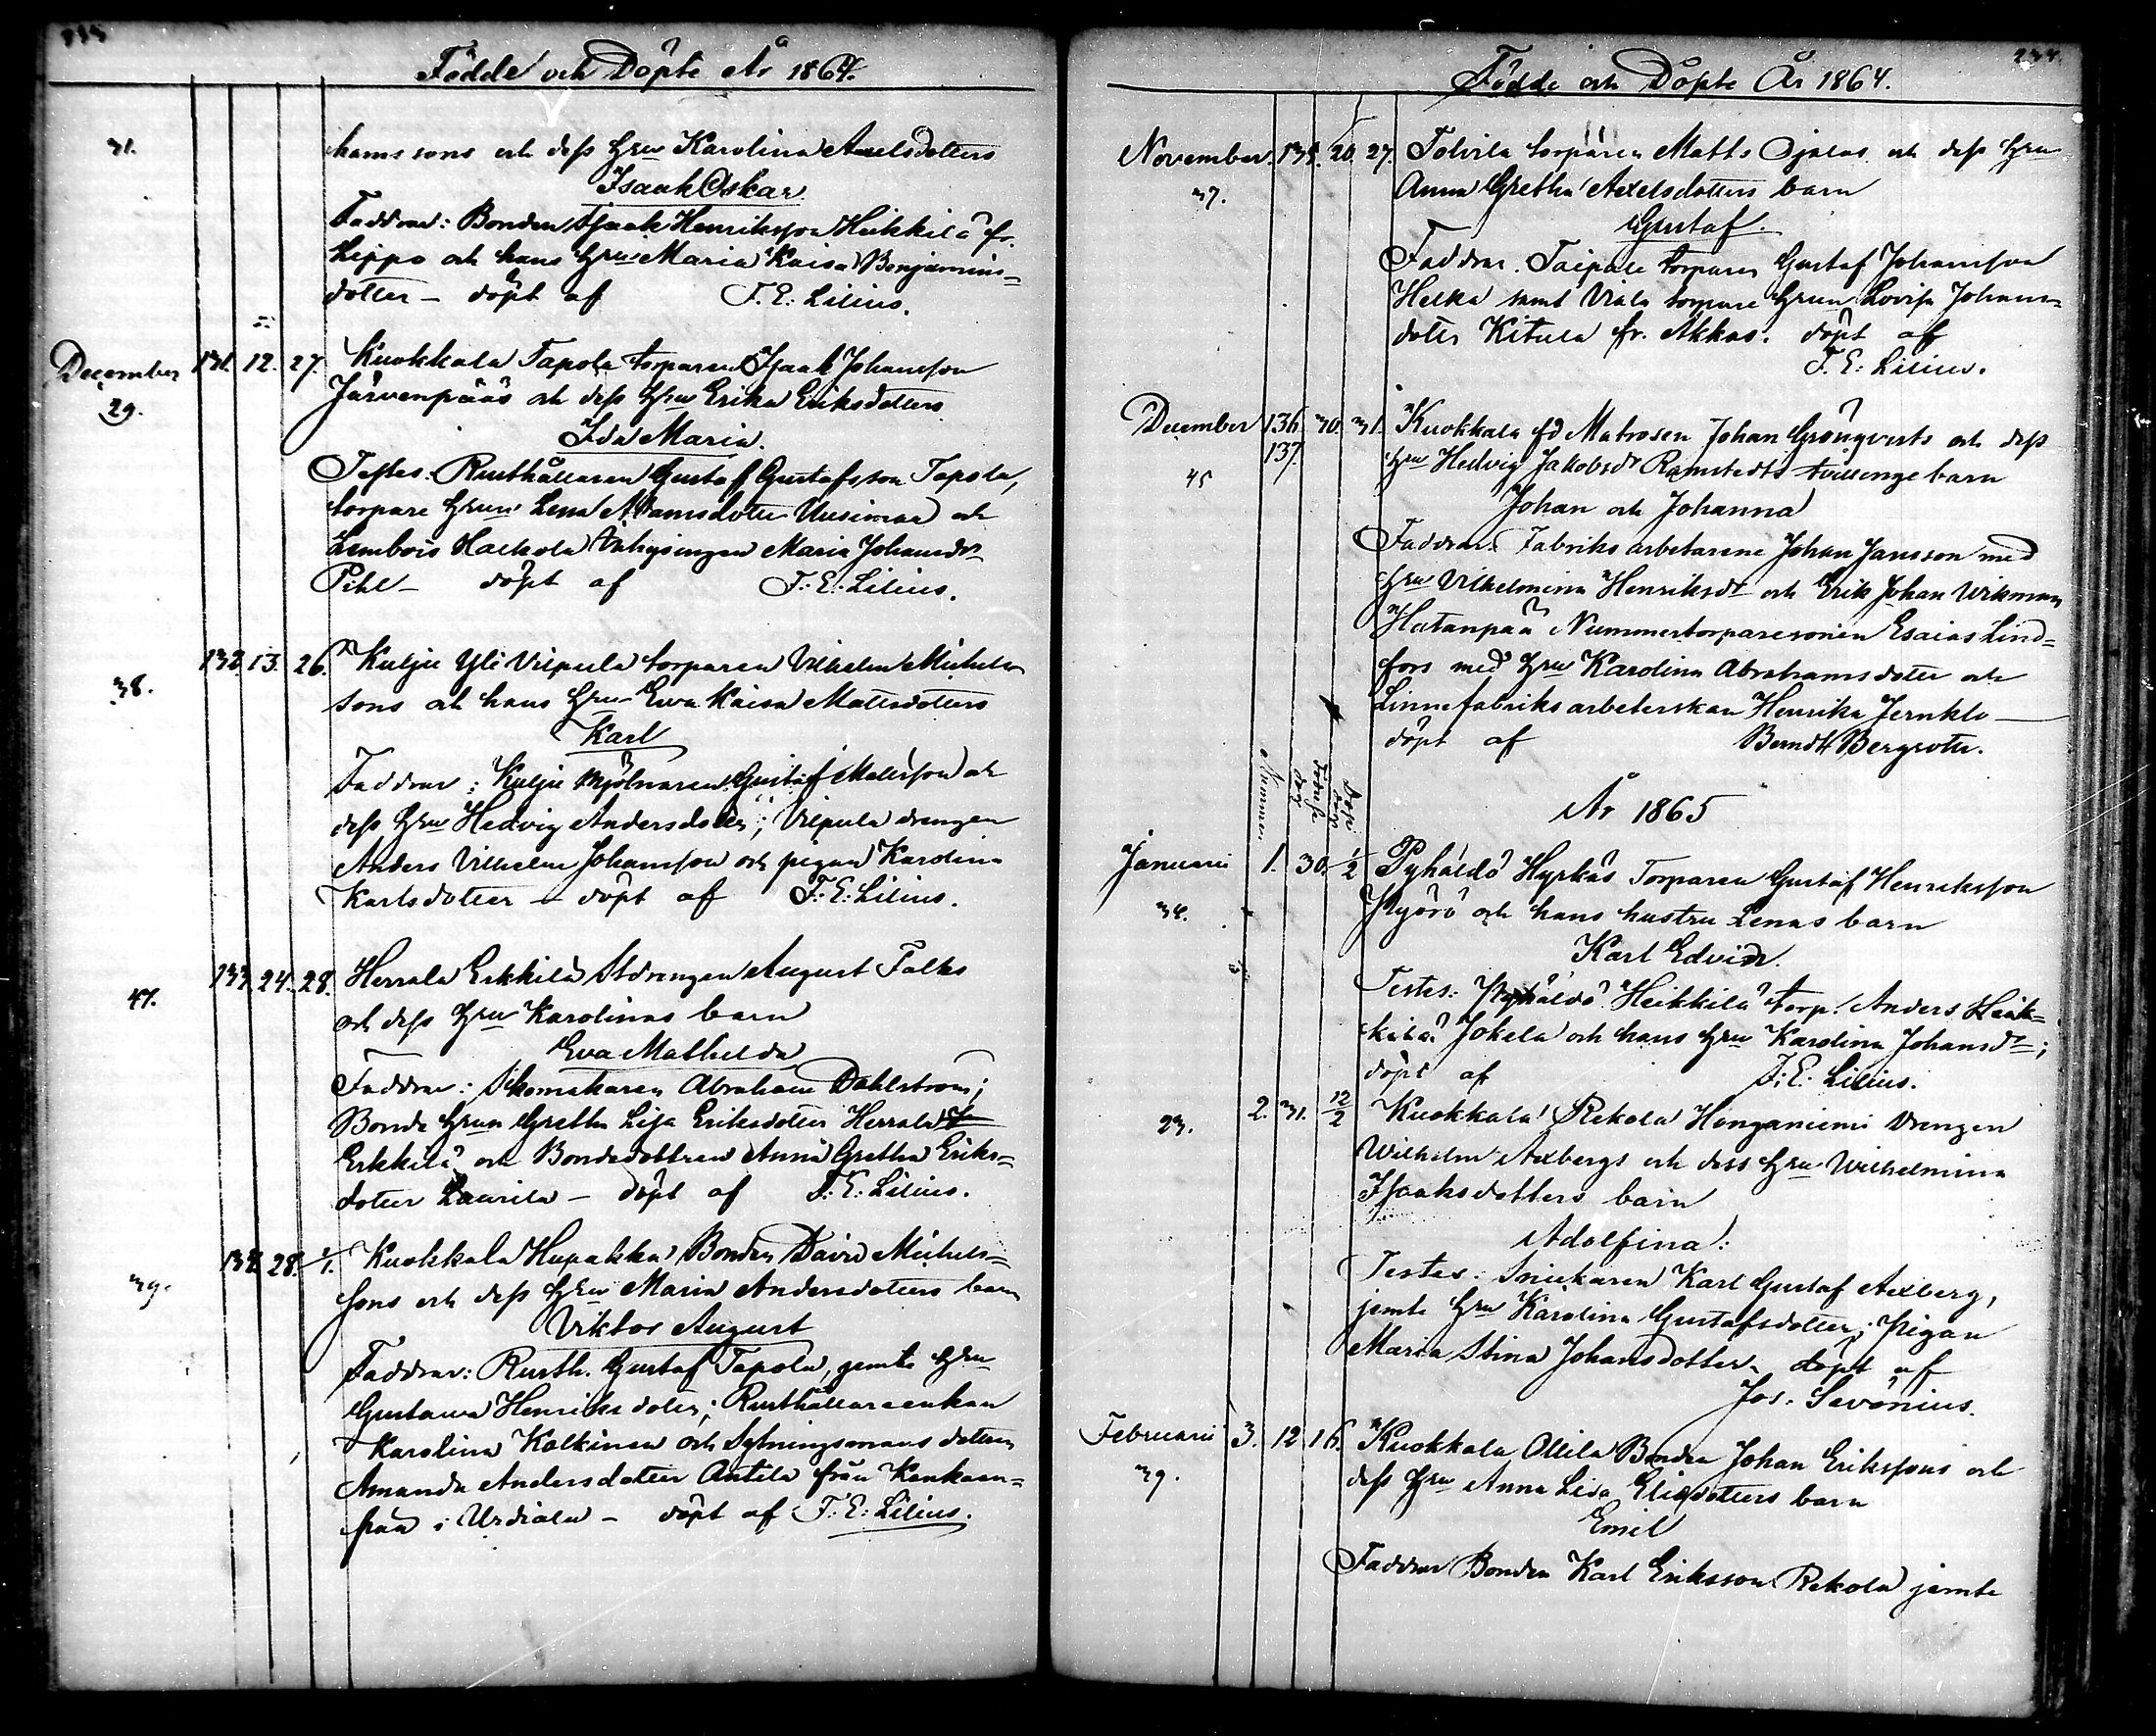 Födde och Döpte År 1864.
31.
hamssons och dess Hru Karolina Axelsdotters
Isaak Oskar
Faddrar: Bonden Isaak Henriksson Heikkilä fr.
Lippo och hans Hru Maria Kaisa Benjamins-
dotter – döpt af F. E. Lilius.
December 131. 12. 27. Kuokkala Tapola torparen Isaak Johansson
29.
Järvenpääs och dess Hru Erika Eriksdotters
Ida Maria.
Testes. Rusthållaren Gustaf Gustafsson Tapola,
torpare Hrun Lena Adamsdotter Uusimaa och
Lembois Halkola Inhysingen Maria Johansdr
Pihl – döpt af F. E. Lilius.
38.
132. 13. 26. Kulju Yli Vilpula torparen Vilhelm Michels-
sons och hans Hru Eva Kaisa Mattsdotters
Karl
Faddrar: Kulju Mjölnaren Gustaf Matsson och
dess Hru Hedvig Andersdotter; Vilpula drengen
Anders Vilhelm Johansson och pigan Karolina
Karlsdotter – döpt af F. E. Lilius.
41.
133. 24. 28. Herrala Erkkilä Stdrengen August Falks
och dess Hru Karolinas barn
Eva Mathilda
Faddrar: Skomakaren Abraham Dahlström;
Bonde Hrun Gretha Lisa Eriksdotter Herrala
Erkkilä och Bondedottren Anna Gretha Eriks-
dotter Laurila – döpt af F. E. Lilius.
39.
134. 28. 1/1. Kuokkala Hupakka Bonden David Michels-
sons och dess Hru Maria Andersdotters barn
Viktor August
Faddrar: Rusth. Gustaf Tapola, jemte Hru
Gustava Henriksdotter; Rusthållareenkan
Karolina Kalkinen och Sytningsmans dottren
Amanda Andersdotter Antila från Kankaan-
pää i Urdiala – döpt af F. E. Lilius.
234.
Födde och Döpte År 1864.
November. 135. 20. 27. Tolvila torparen Matts Ojalas och dess Hru
37.
Anna Gretha Axelsdotters barn
Gustaf.
Faddrar. Taipale torparen Gustaf Johansson
Helka samt Viala torpare Hrun Lovisa Johans-
dotter Kitula fr. Akkas. döpt af
F. E. Lilius.
December 136. 30. 31. Kuokkala fd Matrosen Johan Grönqvists och dess
137.
45
Hru Hedvig Jakobsdr Ramstedts tvillinge barn
Johan och Johanna
Faddrar. Fabriks arbetarene Johan Jansson med
Hru Vilhelmina Henriksdr och Erik Johan Wikman
Hatanpää Nummertorparesonen Esaias Lind-
fors med Hru Karolina Abrahamsdotter och
Linnefabriksarbeterskan Henrika Jernklo –
döpt af Berndt Bergroth.
Nummer
Födelse dag
Dop dag
År 1865
Januarii 1. 30. 1/2 Pyhäldö Hyrkäs Torparen Gustaf Henriksson
34.
Kyörö och hans hustru Lenas barn
Karl Edvid.
Testes: Pyhäldö Heikkilä torp. Anders Heik-
kilä Jokela och hans Hru Karolina Johansdr;
döpt af F. E. Lilius.
23.
2. 31. 12/2 Kuokkala Rekola Honganiemi Drengen
Wilhelm Axbergs och dess Hru Wilhelmina
Isaaksdotters barn
Adolfina.
Testes. Snickaren Karl Gustaf Axberg,
jemte Hru Karolina Gustafsdotter; Pigan
Maria Stina Johansdotter, döpt af
Jos. Sevonius.
Februarii 3. 12 16. Kuokkala Ollila Bonden Johan Erikssons och
39.
dess Hru Anna Lisa Eliedotters barn
Emil
Faddrar Bonden Karl Eriksson Rekola jemte